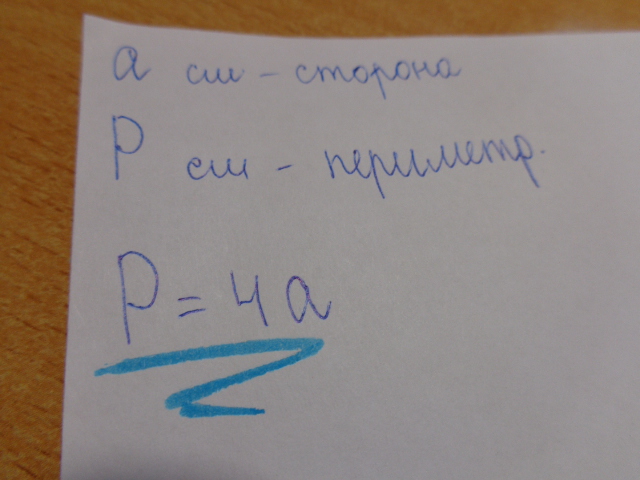 a см - сторона
P см - периметр.
P = 4a